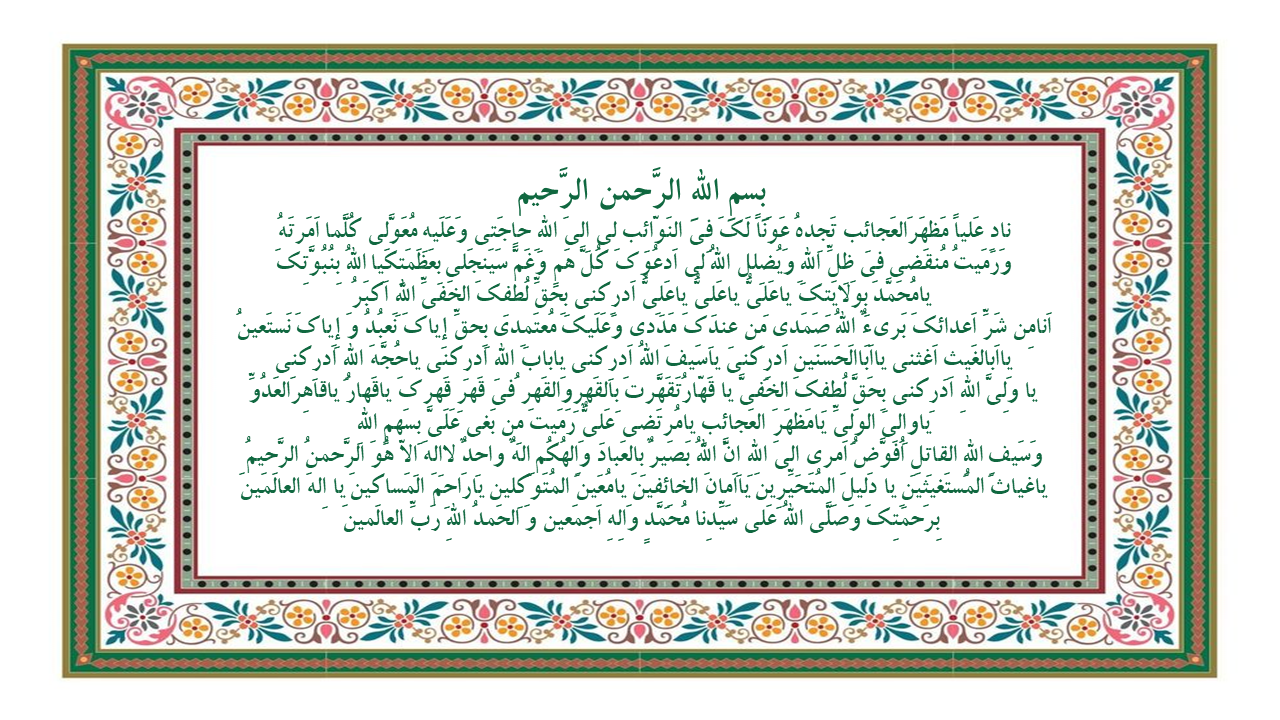 بسم الله الرَّحمن الرَّحیم
نادِ عَلیاً مَظهَرَالعَجائب تَجِدهُ عَوناً لَکَ فیِ النَوآئب لی اِلیَ اللهِ حاجَتی وَعَلَیهِ مُعَوَّلی کُلَّما اَمَرتَهُ
وَرَمَیتُ مُنقَضی فیِ ظِلِّ اللهِ وَیُضلِلِ اللهُ لی اَدعُوکَ کُلَّ هَمٍ وَغَمٍ سَیَنجَلی بِعَظَمَتِکَیا اللهُ بِنُبُوَّتِکَ
یامُحَمَّدَ بِوِلایَتِکَ یاعَلَیُّ یاعَلیُّ یاعَلیُّ اَدرِکنی بِحَقِّ لُطفِکَ الخَفیِّ اللهُ اَکبَرُ
اَنامِن شَرِّ اَعدائکَ بَریءٌ اللهُ صَمَدی مِن عِندِکَ مَدَدی وَعَلَیکَ مُعتَمِدی بِحقِّ إیاکَ نَعبُدُ وَ إیاکَ نَستَعینُ
یااَبالغَیثِ اَغثنی یااَبَاالَحَسَنَینِ اَدرِکنی یاسَیفَ اللهُ اَدرِکنی یابابَ اللهِ اَدرِکنی یاحُجَّهَ اللهِ اَدرِکنی
یا وَلِیَّ اللهِ اَدرِکنی بِحَقِّ لُطفِکَ الخَفیَّ یا قَهّارُتَقَهَّرتَ بِالقَهرِوَالقَهرِ ُفیَ قَهرِ قَهرِکَ یاقَهارُ یاقاهِرَالعَدُوِّ
یاوالِیَ الوَلیِّ یامَظهَرَ العَجائبِ یامُرتَضی عَلیُّ رَمَیتَ مَن بَغی عَلَیَّ بِسَهمِ اللهِ
وَسَیفِ اللهِ القاتلِ اُفَوِّضُ اَمری اِلیَ اللهِ اِنَّ اللهُ بَصیرٌ بِالعِبادَ وَاِلهُکُم اِلهٌ واحدٌ لااله اِلاّ هُوَ الرَّحمنُ الرَّحیمُ
یاغیاثَ المُستَغیثَینِ یا دَلیلَ المُتَحَیِّرینَ یااَمانَ الخائِفینَ یامُعینَ المُتَوَکِلینِ یاراحَمَ المَساکینَ یا الهَ العالَمینَ
بِرَحمَتِکَ وَصَلَّی اللهُ عَلی سَیِّدِنا مُحَمَّدٍ وَالِهِ اَجمَعین وَ الحَمدُ اللهِ رَبِّ العالَمینَ